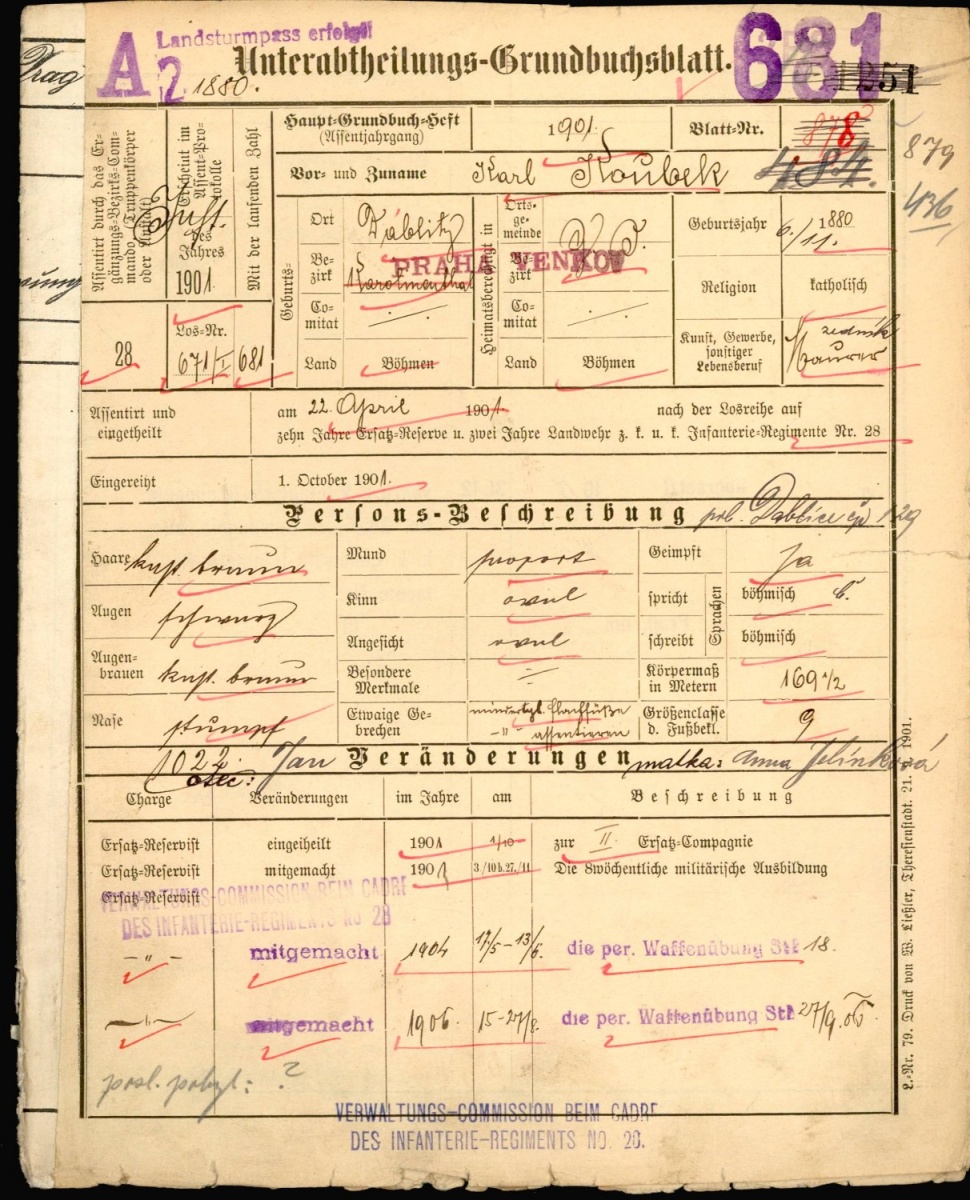 Prag
A
2
Landsturmpass erfolgt!
1880.
Unterabtheilungs-Grundbuchsblatt.
681
1251
Assentirt durch das Er-
gänzungs-Bezirks-Com-
mando (Truppenkörper
oder Anstalt)
Erscheint im
Assent-Pro-
tokolle
des
Jahres
1901
Mit der laufenden Zahl
28
Los-Nr.
671/I
681
Haupt-Grundbuch-Heft
(Assentjahrgang)
1901.
Blatt-Nr.
878
484.
879
436
Vor- und Zuname
Karl Koubek
Geburts-
Ort
Ďáblitz
Be-
zirk
Karolinenthal
Co-
mitat
Land
Böhmen
Heimatsberechtigt in
Orts-
ge-
meinde
Be-
zirk
PRAHA VENKOV
Co-
mitat
Land
Böhmen
Geburtsjahr
6./11. 1880
Religion
katholisch
Kunst, Gewerbe,
sonstiger
Lebensberuf
zedník
Maurer
Assentirt und
eingetheilt
am 22. April 1901. nach der Losreihe auf
zehn Jahre Ersatz-Reserve u. zwei Jahre Landwehr z. k. u. k. Infanterie-Regimente Nr. 28
Eingereiht
1. October 1901.
Persons-Beschreibung
Dablice čp 129
Haare
braun
Augen
schwarz
Augen-
brauen
braun
Nase
stumpf
Mund
proport
Kinn
oval
Angesicht
oval
Besondere
Merkmale
Etwaige Ge-
brechen
Flachfüße
Geimpft
Ja
spricht
Sprachen
böhmisch
schreibt
böhmisch
Körpermaß
in Metern
169 1/2
Größenclasse
d. Fußbekl.
9
1022
otec: Jan
Veränderungen
matka: Anna Jelínková
Charge
Veränderungen
im Jahre
am
Beschreibung
Ersatz-Reservist eingeiheilt 1901 1/10 zur II. Ersatz-Compagnie
Ersatz-Reservist mitgemacht 1901 3./10 b. 27./11 Die 8wöchentliche militärische Ausbildung
Ersatz-Reservist
VERWALTUNGS-COMMISSION BEIM CADRE
DES INFANTERIE-REGIMENTS NO 28
-"- mitgemacht 1904 17/5-13/6. die per. Waffenübung Stb 18.
-"- mitgemacht 1906. 15-27/8. die per. Waffenübung Stb 27/9. 06.
posl. pobyt: ?
VERWALTUNGS-COMMISSION BEIM CADRE
DES INFANTERIE-REGIMENTS NO. 28.
L.-Nr. 79. Druck von W. Ließler, Theresienstadt. 21. 1901.